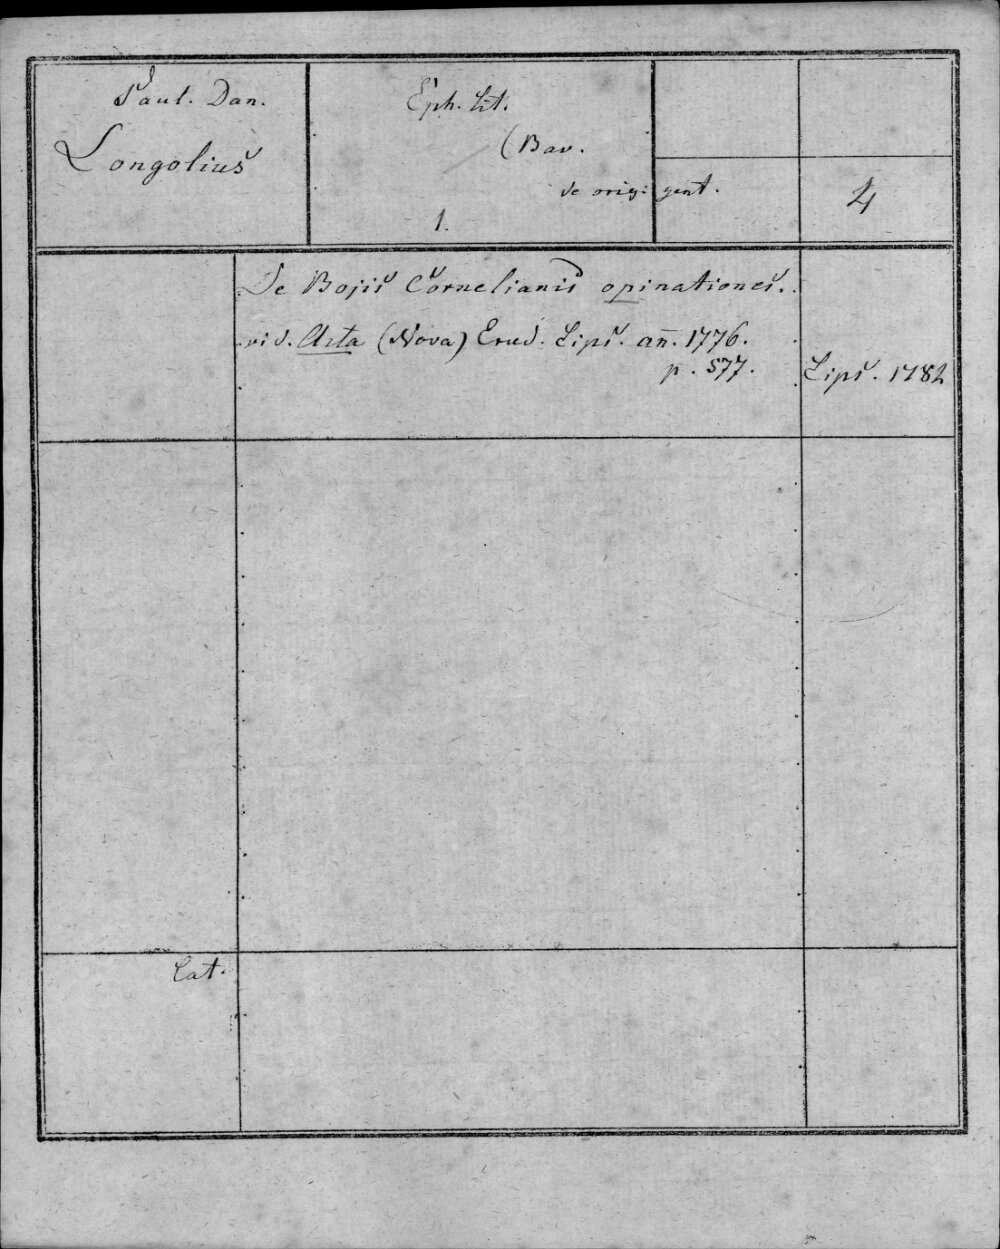 Paul. Dan.
Longolius
Eph. lit.
(Bav.
de orig. gent.
1.
4
De Bojis Cornelianis opinationes.
vid. Acta (Nova) Erud. Lips. añ. 1776.
p. 577.
Lips. 1782
Lat.